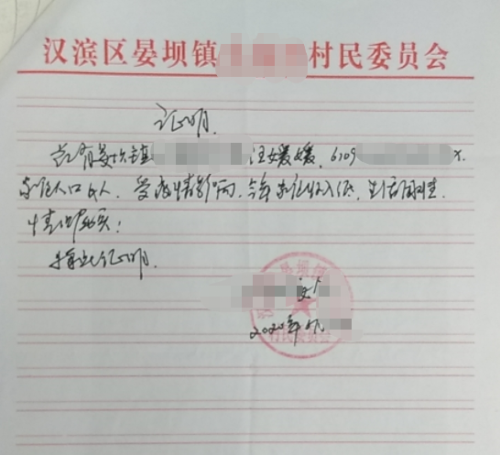 汉滨区晏坝镇 村民委员会
证明
兹有晏坝镇 汪媛媛,6109 X.
家庭人口 人,受疫情影响,今年 收入低,生活困难.
情况属实!
特此证明.
2020年
村民委员会